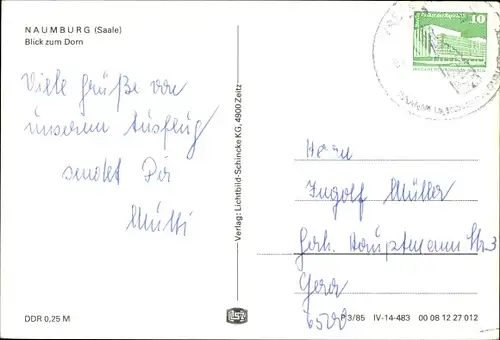 NAUMBURG (Saale)
Blick zum Dom
Viele Grüße von
unserem Ausflug
sendet Dir
Mutti
DDR 0,25 M
Verlag: Lichtbild-Schincke KG, 4900 Zeitz
10
Herrn
Ingolf Müller
Gerh. Hauptmann Str. 3
Gera
6500
P 3/85 IV-14-483 00 08 12 27 012